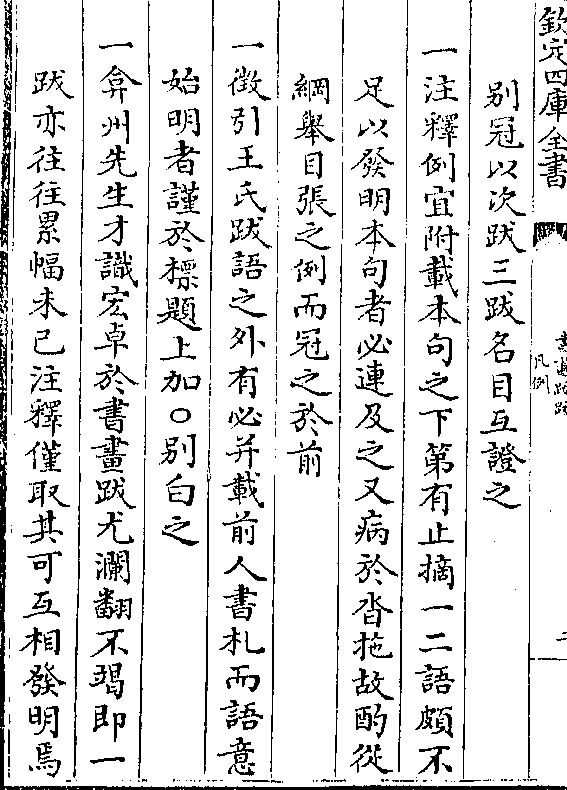 欽定四庫全書
凡例
別冠以次跋三跋名目互證之
一注釋例宜附載本句之下第有止摘一二語頗不
足以發明本句者必連及之又病於沓拖故酌從
綱舉目張之例而冠之於前
一徵引王氏跋語之外有必并載前人書札而語意
始明者謹於標題上加○別白之
一弇州先生才識宏卓於書畫跋尤瀾翻不竭即一
跋亦往往累幅未已注釋僅取其可互相發明焉